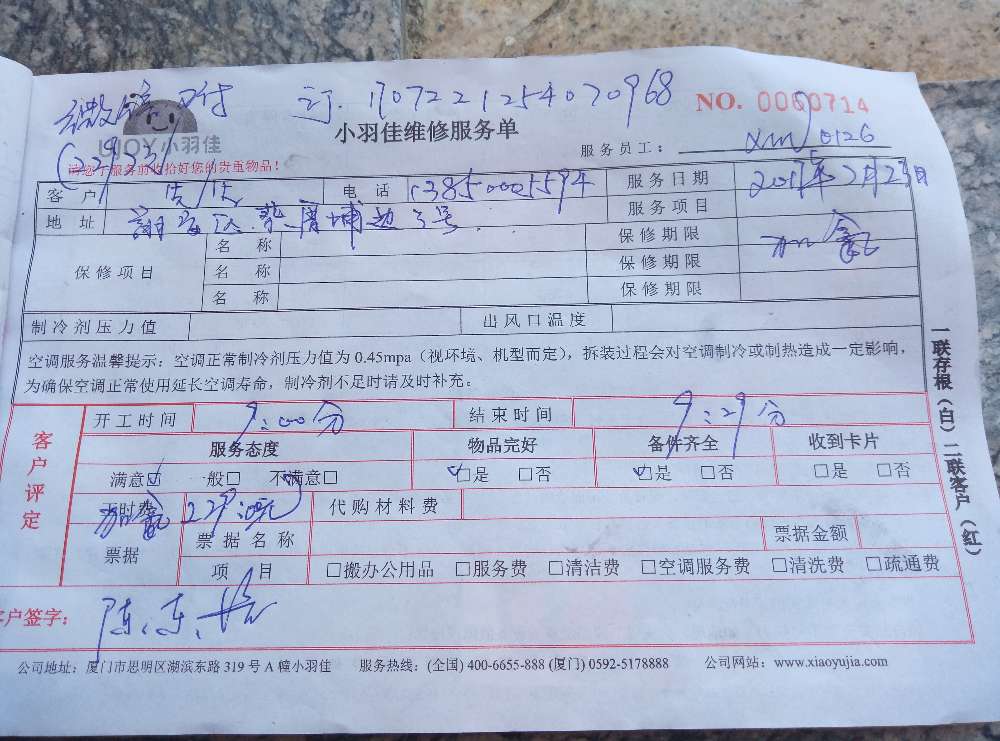 微信 订.170722125407 0968
NO. 0060714
小羽佳
小羽佳维修服务单
服务员工： xm 0126
请您于服务前收拾好您的贵重物品！
客户 电话 13850005594 服务日期
地址 翔安区 埔边3号 服务项目 加氟
保修项目 名称 保修期限
名称 保修期限
名称 保修期限
制冷剂压力值 出风口温度
空调服务温馨提示：空调正常制冷剂压力值为 0.45mpa（视环境、机型而定），拆装过程会对空调制冷或制热造成一定影响，
为确保空调正常使用延长空调寿命，制冷剂不足时请及时补充。
客户评定
开工时间 9:00分 结束时间 9:29分
服务态度 物品完好 备件齐全 收到卡片
满意☑ 一般□ 不满意□ ☑是 □否 ☑是 □否 □是 □否
加氟 229.00元 代购材料费
票据 票据名称 票据金额
项目 □搬办公用品 □服务费 □清洁费 □空调服务费 □清洗费 □疏通费
客户签字：
公司地址：厦门市思明区湖滨东路 319 号 A 幢小羽佳 服务热线：(全国) 400-6655-888 (厦门) 0592-5178888 公司网站：www.xiaoyujia.com
一联存根（白）二联客户（红）